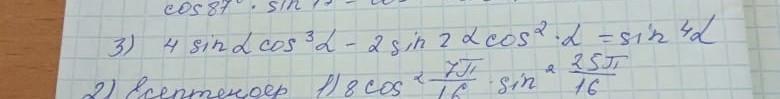 cos87° · sin
3) 4 sin α cos³α - 2 sin 2 α cos² · α = sin 4α
2) Есептеңдер 1) 8 cos² 7π/16 · sin² 25π/16